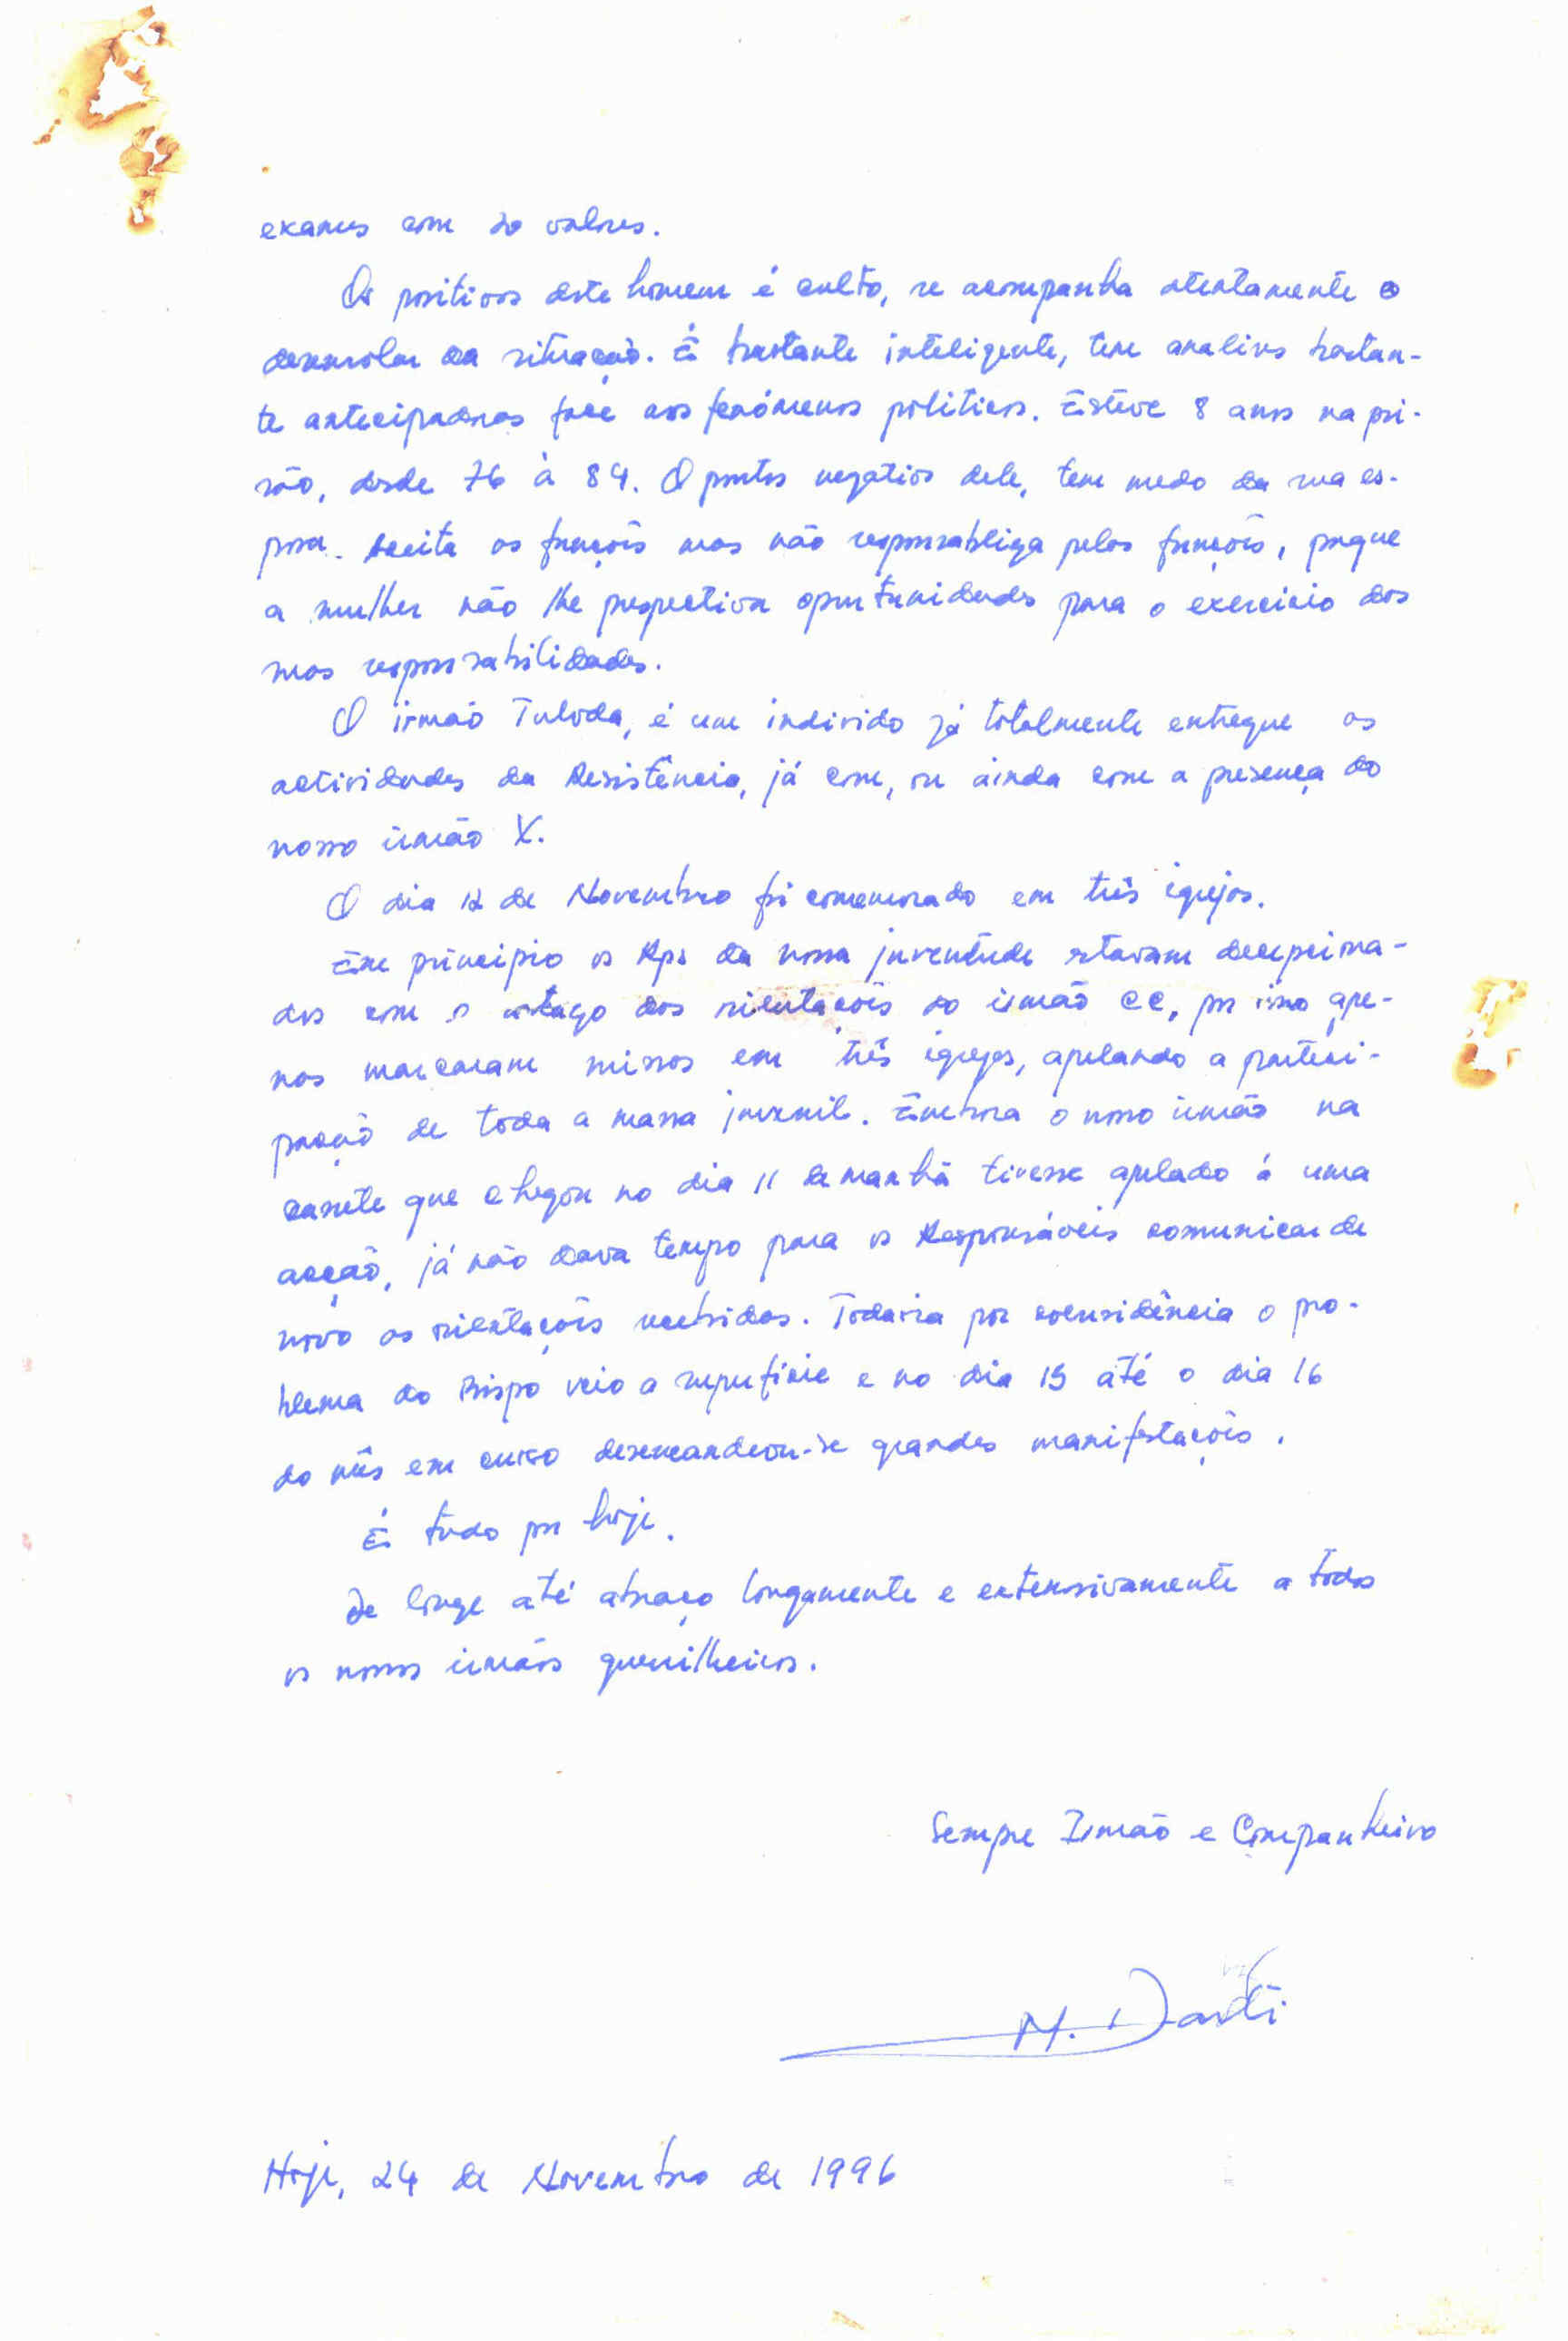 exames com 20 valores.
Os positivos deste homem é culto, se acompanha atentamente o
desenrolar da situação. É bastante inteligente, tem analives bastan-
te antecipadoras face aos fenómenos politicos. Esteve 8 anos na pri-
são, desde 76 à 84. O pontos negatios dele, tem medo da sua es-
posa. Aceita as funçois mas não responsabliza pelas funçois, porque
a mulher não lhe prespectiva oportunidades para o exercicio das
suas responsabilidades.
O irmão Tuloda, é um individo já totalmente entregue as
actividades da Resistência, já com, ou ainda com a presença do
nosso irmão X.
O dia 12 de Novembro foi comemorado em três igrejas.
Em principio os Rps da nossa juventude estavam decepciona-
dos com o das orientaçois do irmão CC, por isso ape-
nas marcaram missas em três igrejas, apelando a partici-
pação de toda a massa juvenil. Embora o nosso irmão na
cassete que chegou no dia 11 de manhã tivesse apelado á uma
acção, já não dava tempo para os Responsáveis comunicar de
novo as orientaçois recebidas. Todavia por coensidência o pro-
blema do Bispo veio a superfície e no dia 15 até o dia 16
do mês em curso desencandeou-se grandes manifestaçois.
É tudo por hoje.
De longe até abraço longamente e extensivamente a todos
os nossos irmãos guerrilheiros.
Sempre Irmão e Companheiro
M. Darti
Hoje, 24 de Novembro de 1996